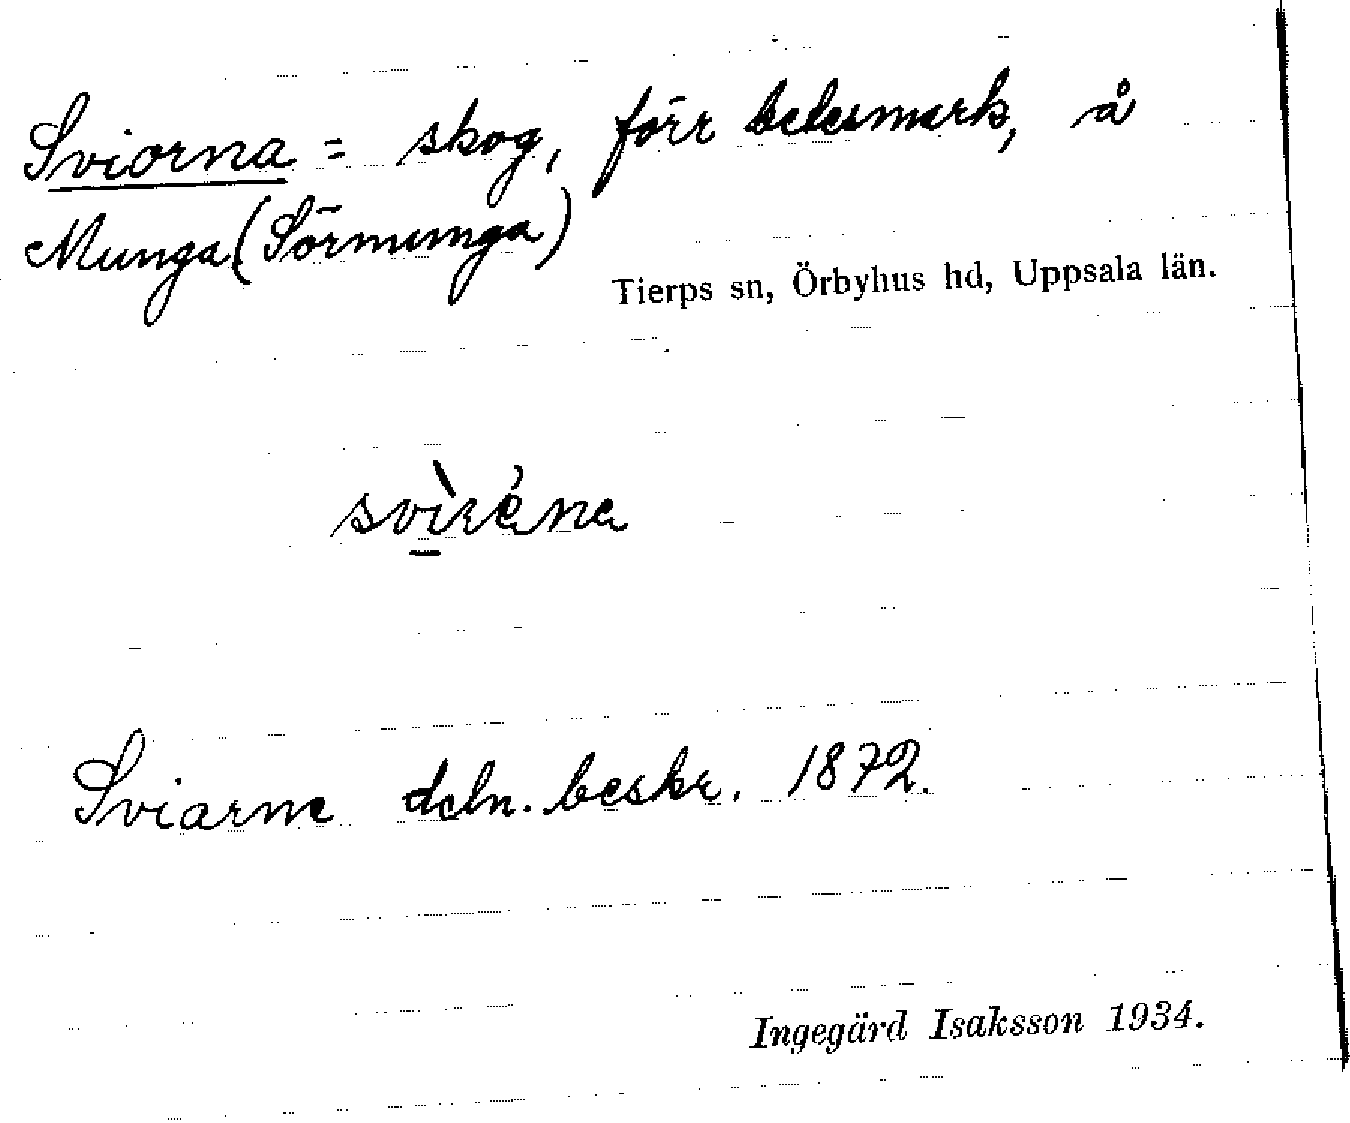 Sviorna = skog, förr betesmark, å
Munga (Sörmunga)
Tierps sn, Örbyhus hd, Uppsala län.
Sviarne deln. beskr. 1872.
Ingegärd Isaksson 1934.